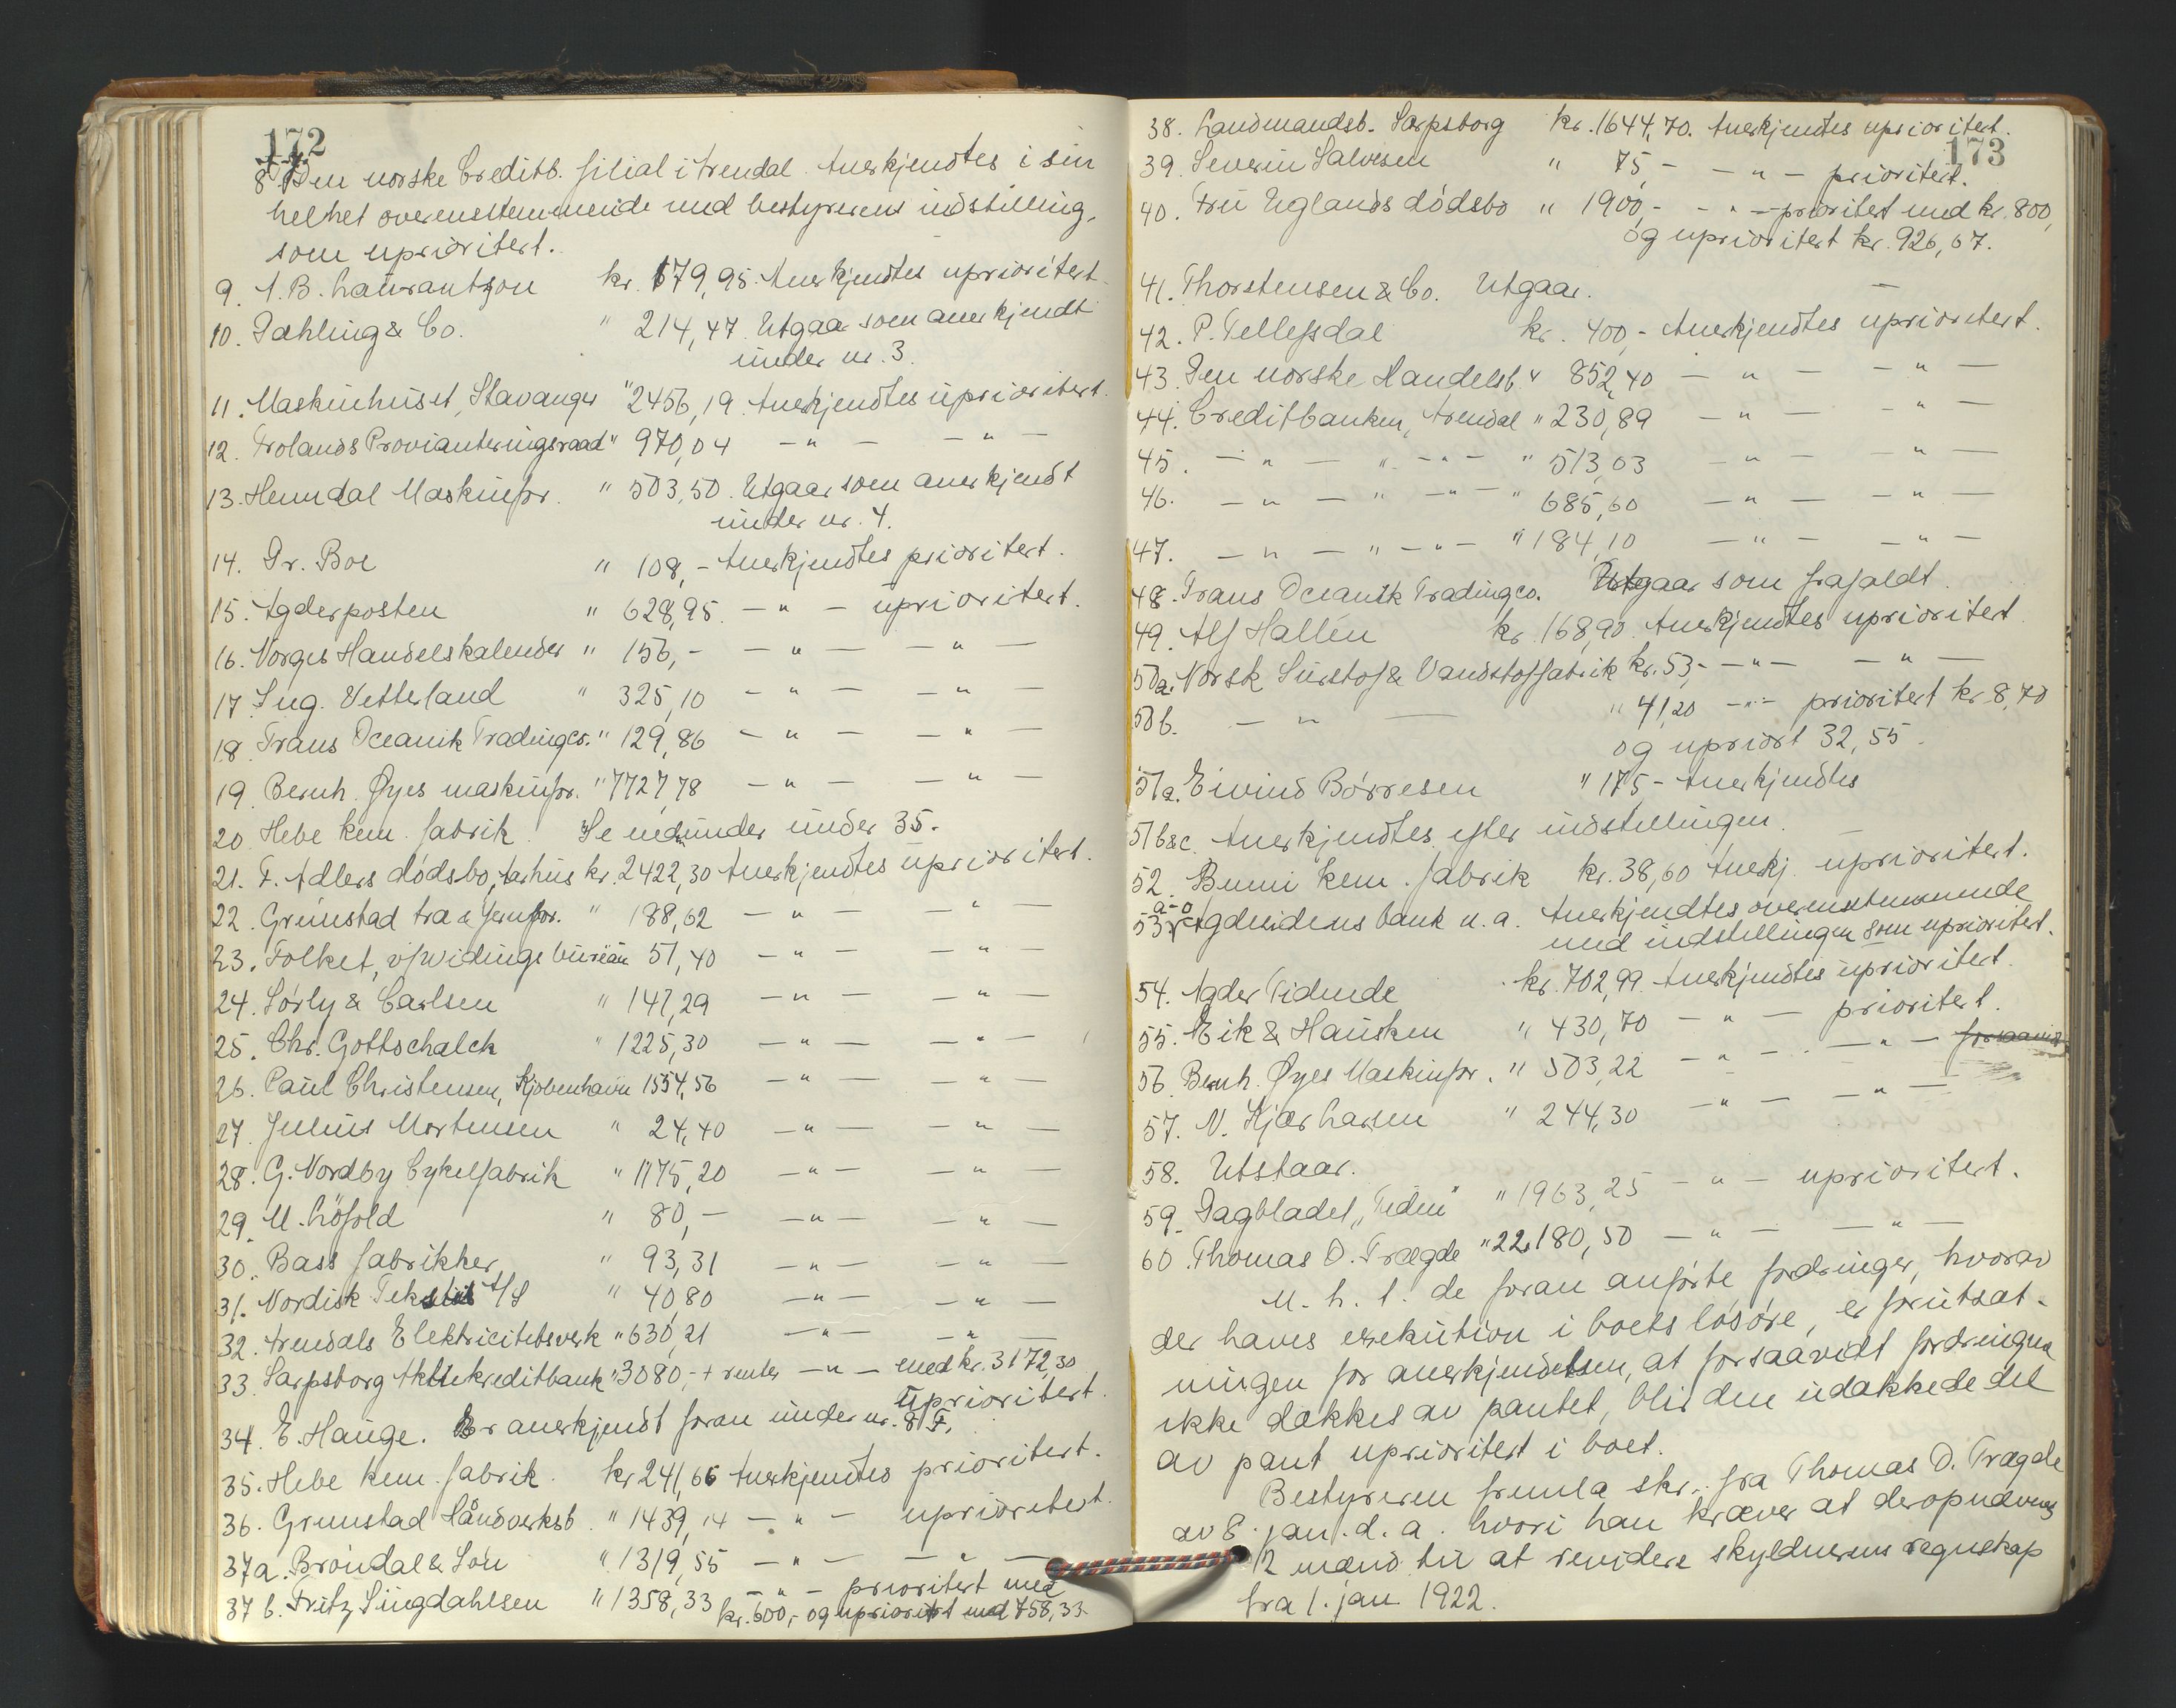 172
8 Den norske Creditb. filial i Arendal. Anerkjendtes i sin
helhet overensstemmende med bestyrerens indstilling,
som uprioritert.
9. A. B. Laurantzon kr. 179,95. Anerkjendtes uprioritert
10. Dahling & Co. " 214,47. Utgaar som anerkjendt
under nr. 3.
11. Maskinhuset, Stavanger " 2456,19. Anerkjendtes uprioritert.
12. Frolands Provianteringsraad " 970,04 — " — — " —
13. Hemdal Maskinfor. " 503,50. Utgaar som anerkjendt
under nr. 4.
14. Dr. Boe " 108,- Anerkjendtes prioritert.
15. Agderposten " 628,95. — " — uprioritert.
16. Norges Handelskalender " 156,- — " — — " —
17. Ing. Vetterland " 325,10 — " — — " —
18. Trans Oceanik Tradingco. " 129,86 — " — — " —
19. Bernh. Øyes maskinfor. " 7727,78 — " — — " —
20. Hebe kem. fabrik. Se nedunder under 35.
21. F. Adlers dödsbo, Aarhus kr. 2422,30 Anerkjendtes uprioritert.
22. Grimstad tra & Jernfor. " 188,62 — " — — " —
23. Folket, v/ Widings bureau 51,40 — " — — " —
24. Sörly & Carlsen " 147,29 — " — — " —
25. Chr. Gottschalck " 1225,30 — " — — " —
26. Paul Christensen, Kjøbenhavn 1554,56 — " — — " —
27. Julius Mortensen " 24,40 — " — — " —
28. G. Nordby Cykelfabrik " 1175,20 — " — — " —
29. M. Löfold " 80,- — " — — " —
30. Bass fabrikker " 93,31 — " — — " —
31. Nordisk Tekstil A/S " 4080 — " — — " —
32. Arendals Elektricitetsverk " 630,21 — " — — " —
33. Sarpsborg Aktiekreditbank " 3080,- + renter — " — med kr. 3172,30
uprioritert.
34. E. Hauge. Er anerkjendt foran under nr. 8 F.
35. Hebe kem. fabrik. kr 241,66 Anerkjendtes prioritert.
36. Grimstad Håndverksb. " 1439,14 — " — uprioritert.
37a. Bröndal & Sön " 1319,55 — " — — " —
37 b. Fritz Ljungdahlsen " 1358,33 — " — prioritert med
kr. 600,- og uprioritert med 758,33.
173
38. Landmandsb. Sarpsborg kr. 1644,70. Anerkjendtes uprioritert.
39. Severin Salvesen " 75,- — " — prioritert.
40. Fru Uglands dödsbo " 1900,- — " — prioritert med kr. 800,
og uprioritert kr. 926,67.
41. Thorstensen & Co. Utgaar. —
42. P. Tellefsdal kr. 400,- Anerkjendtes uprioritert.
43. Den norske Handelsb. " 852,40 — " — — " —
44. Creditbanken, Arendal " 230,89 — " — — " —
45. — " — " — " — " 513,03 — " — — " —
46. — " — " — " — " 685,60 — " — — " —
47. — " — " — " — " 184,10 — " — — " —
48. Trans Oceanik Tradingco. Utgaar som frafaldt.
49. Alf Hallén kr. 168,90. Anerkjendtes uprioritert.
50a. Norsk Surstof & Vandstoffabrik kr. 53,- — " — — " —
50 b. — " — " 41,20 — " — prioritert kr. 8,70
og upriort 32,55.
51a. Eivind Børresen " 175,- Anerkjendtes
51b&c. Anerkjendtes efter indstillingen. —
52. Bumi kem. fabrik kr. 38,60 Anerkj. uprioritert.
53 a-o Agdesidens bank m. a. Anerkjendtes overensstemmende
med indstillingen som uprioritert.
54. Agder Tidende kr. 702,99. Anerkjendtes uprioritert.
55. Eik & Hausken " 430,70 — " — prioritert.
56. Bernh. Øyes Maskinfor. " 503,22 — " — — " — forsaavidt
57. N. Kjær Larsen " 244,30 — " — — " —
58. Utstaar.
59. Dagbladet „Tiden" " 1963,25 — " — uprioritert.
60. Thomas D. Trægde " 22.180,50 — " — — " —
M. h. t. de foran anförte fordringer, hvorav
der haves exekution i boets lösöre, er forutsat-
ningen for anerkjendelsen, at forsaavidt fordringen
ikke dækkes av pantet, blir den udækkede del
av pant uprioritert i boet.
Bestyreren fremla skr. fra Thomas D. Trægde
av 8. jan. d. a. hvori han kræver at deropnævnes
2 mænd til at revidere skyldnerens regnskap
fra 1. jan 1922.